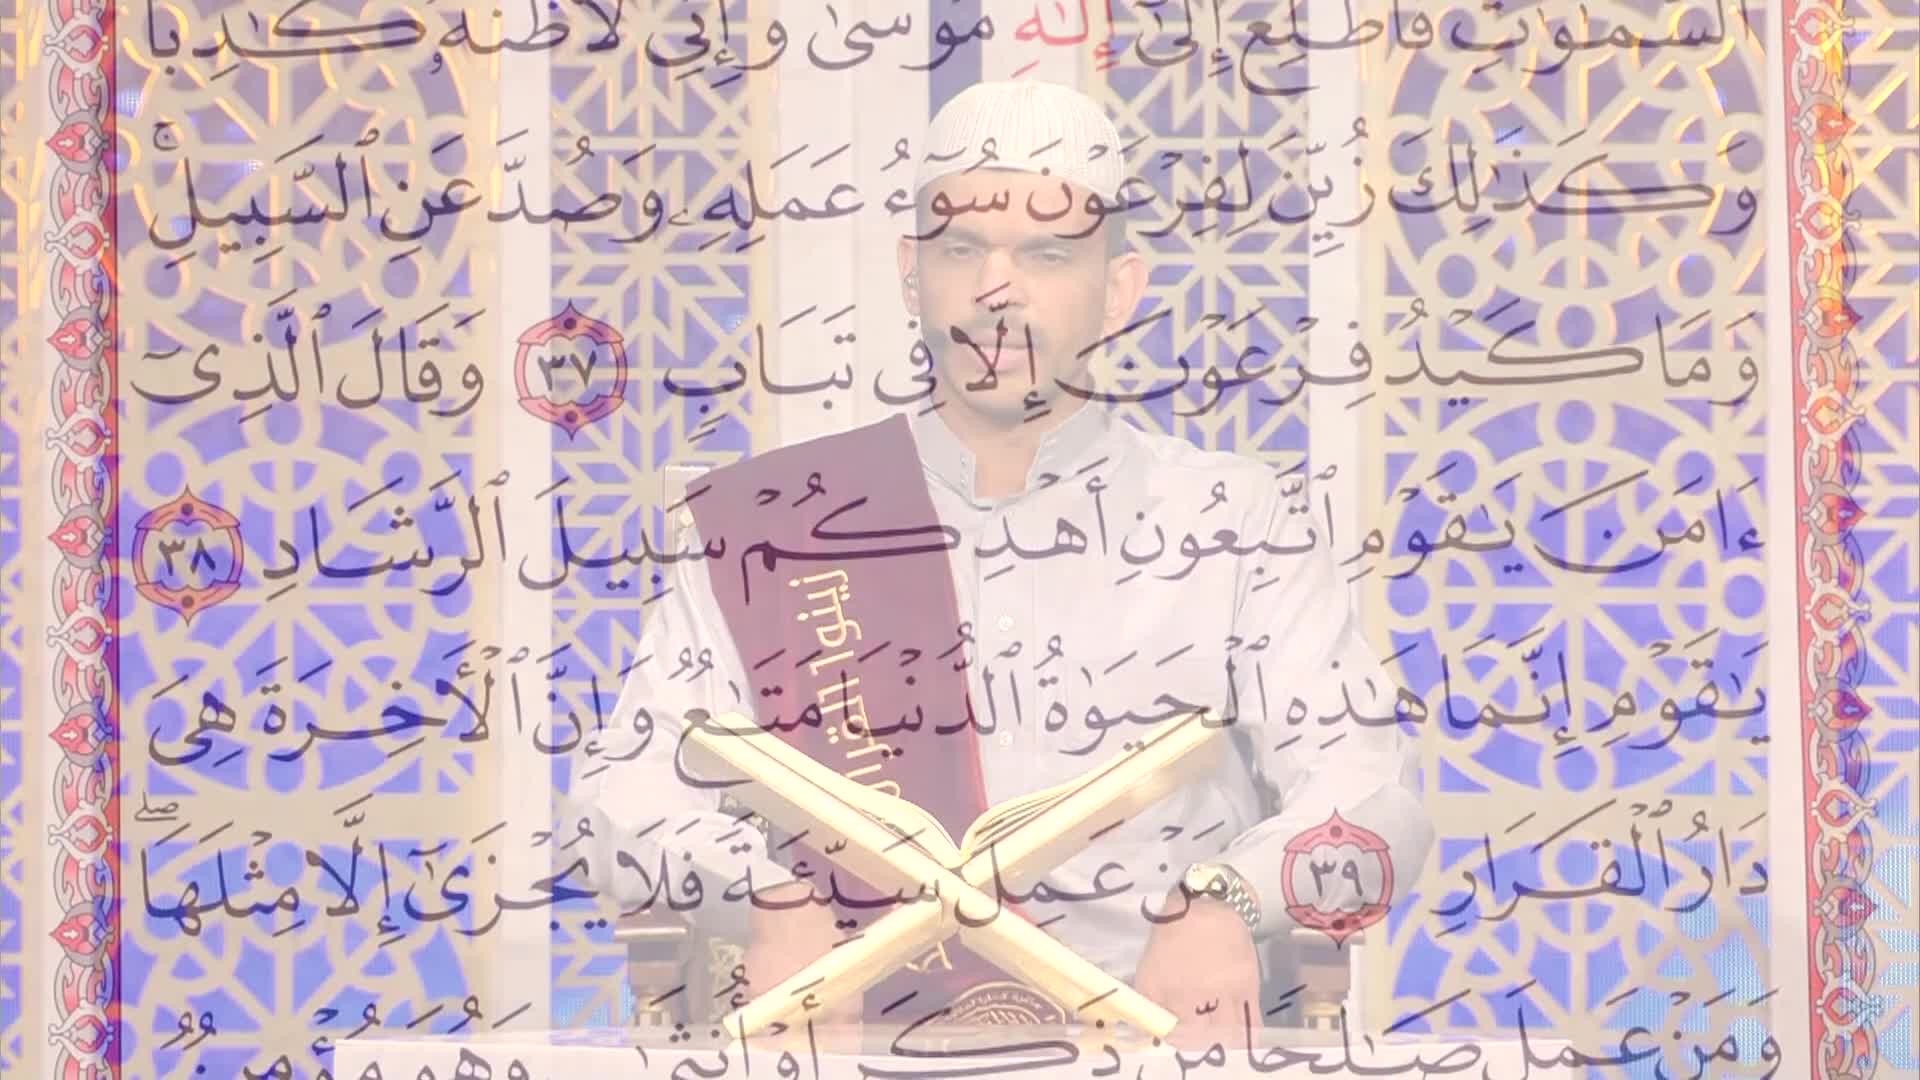 ٱلسَّمَـٰوَٰتِ فَأَطَّلِعَ إِلَىٰٓ إِلَـٰهِ مُوسَىٰ وَإِنِّى لَأَظُنُّهُۥ كَـٰذِبًا
وَكَذَٰلِكَ زُيِّنَ لِفِرْعَوْنَ سُوٓءُ عَمَلِهِۦ وَصُدَّ عَنِ ٱلسَّبِيلِ ۚ
وَمَا كَيْدُ فِرْعَوْنَ إِلَّا فِى تَبَابٍ ٣٧ وَقَالَ ٱلَّذِىٓ
ءَامَنَ يَـٰقَوْمِ ٱتَّبِعُونِ أَهْدِكُمْ سَبِيلَ ٱلرَّشَادِ ٣٨
يَـٰقَوْمِ إِنَّمَا هَـٰذِهِ ٱلْحَيَوٰةُ ٱلدُّنْيَا مَتَـٰعٌ وَإِنَّ ٱلْأَخِرَةَ هِىَ
دَارُ ٱلْقَرَارِ ٣٩ مَنْ عَمِلَ سَيِّئَةً فَلَا يُجْزَىٰٓ إِلَّا مِثْلَهَا ۖ
وَمَنْ عَمِلَ صَـٰلِحًا مِّن ذَكَرٍ أَوْ أُنثَىٰ وَهُوَ مُؤْمِنٌ
زينوا القرآن